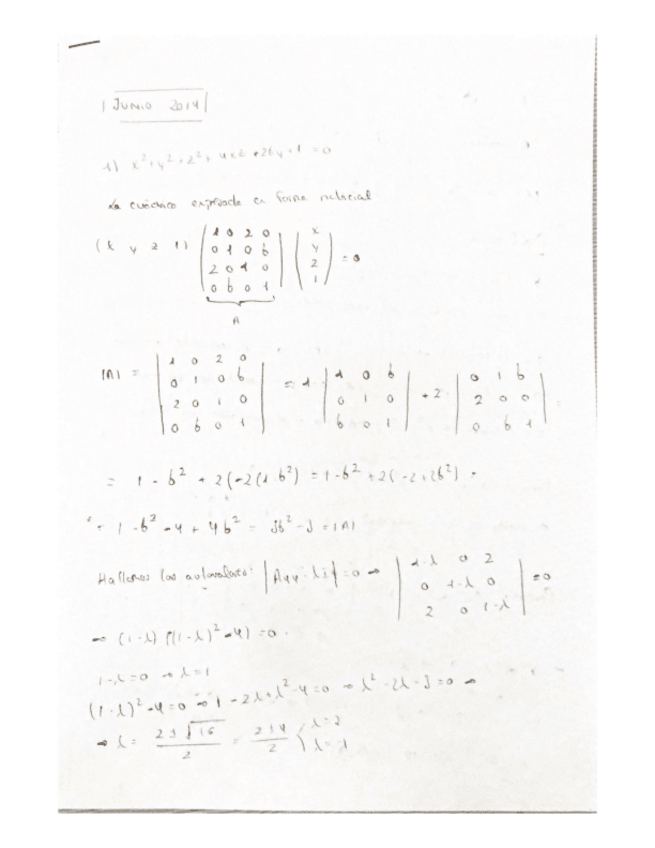 JUNIO 2014
1) x²+y²+z²+4xz+2by+1=0
La cuádrica expresada en forma matricial
(x y z 1) | 1 0 2 0 | | x | = 0
| 0 1 0 b | | y |
| 2 0 1 0 | | z |
| 0 b 0 1 | | 1 |
A
|A| = | 1 0 2 0 | = 1 · | 1 0 b | + 2 · | 0 1 b |
| 0 1 0 b | | 0 1 0 | | 2 0 0 |
| 2 0 1 0 | | b 0 1 | | 0 b 1 |
| 0 b 0 1 |
= 1 - b² + 2(-2(1-b²) = 1-b² + 2(-2+2b²) =
= 1 - b² - 4 + 4b² = 3b² - 3 = |A|
Hallemos los autovalores: | - λI | = 0 → | 1-λ 0 2 | = 0
| 0 1-λ 0 |
| 2 0 1-λ |
→ (1-λ) ((1-λ)² - 4) = 0
1-λ=0 → λ=1
(1-λ)² - 4 = 0 → 1 - 2λ + λ² - 4 = 0 → λ² - 2λ - 3 = 0 →
→ λ = 2 ± √16 / 2 = 2 ± 4 / 2 λ=3
λ=-1